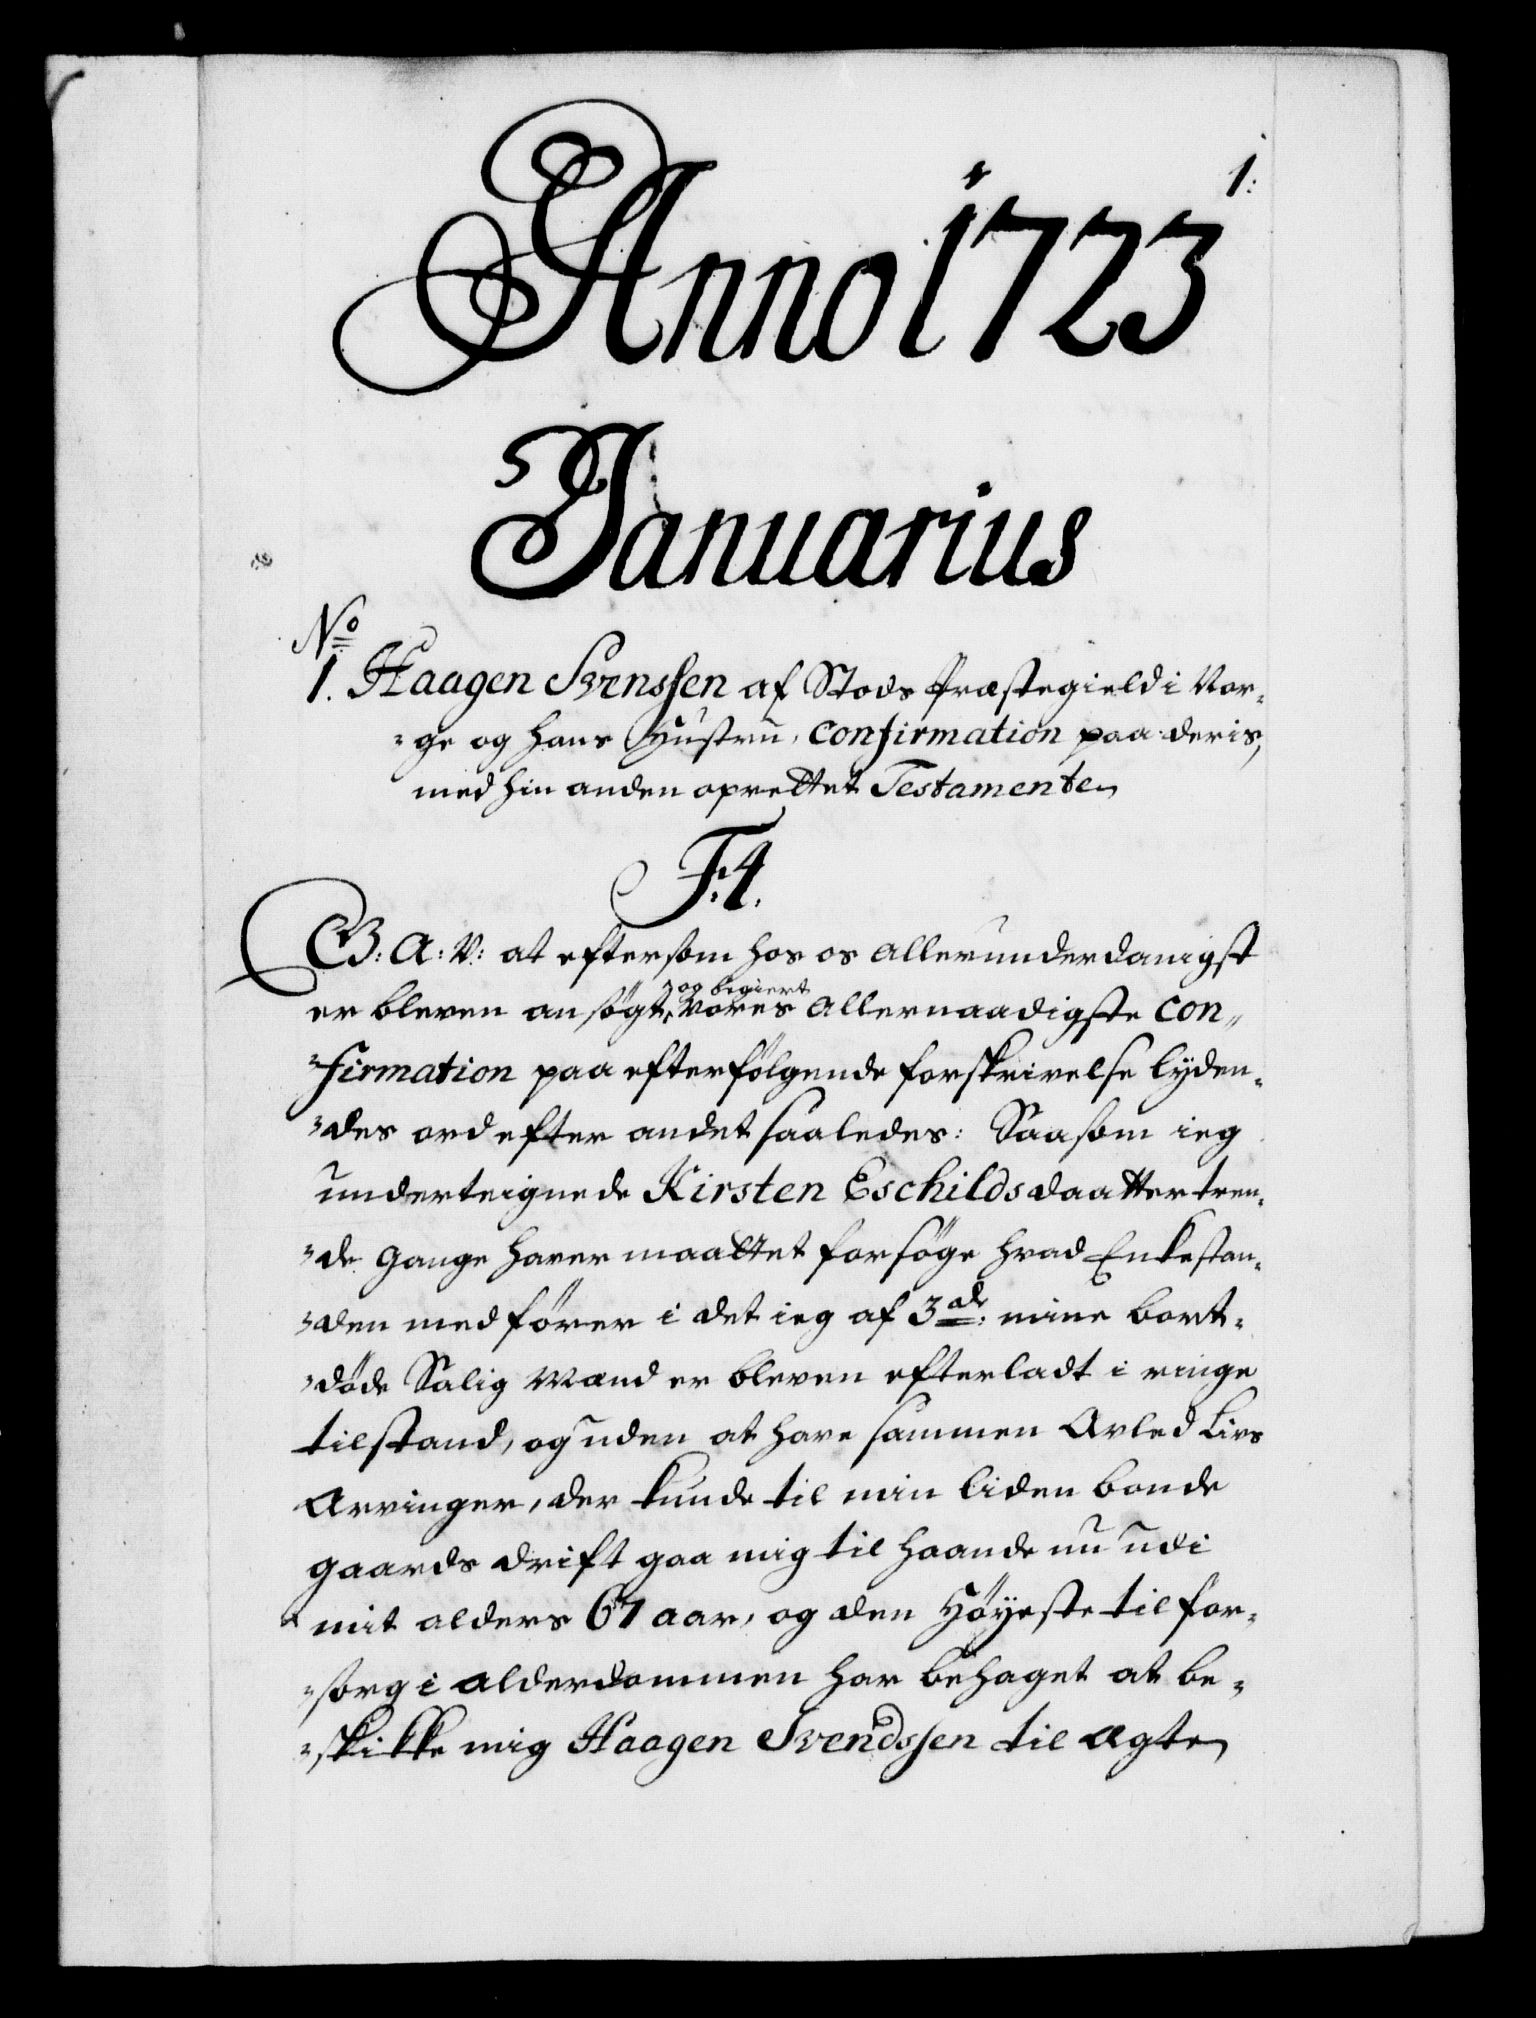 1:
Anno 1723
Januarius
No
1. Haagen Svenssen af Stods Præstegield i Nor-
-ge og hans Hustru, Confirmation paa deris,
med hin anden oprettet Testamente
F:4.
G: A: V: at eftersom hos os allerunderdanigst
er bleven ansøgt, og begiert vores allernaadigste Con-
-firmation paa efterfølgende forskrivelse lyden-
-des ord efter andet saaledes: Saasom ieg
underteignede Kirsten Eschildsdaatter tren-
-de gange haver maattet forsøge hvad Enkestan-
-den medfører i det ieg af 3de: mine bort-
-døde Salig Mænd er bleven efterladt i ringe
tilstand, og uden at have sammen Avled Livs
Arvinger, der kunde til min liden bonde
gaards drift gaa mig til haande nu udi
mit alders 67 aar, og den Høyeste til for-
-sorg i alderdommen har behaget at be-
-skikke mig Haagen Svendssen til ægte